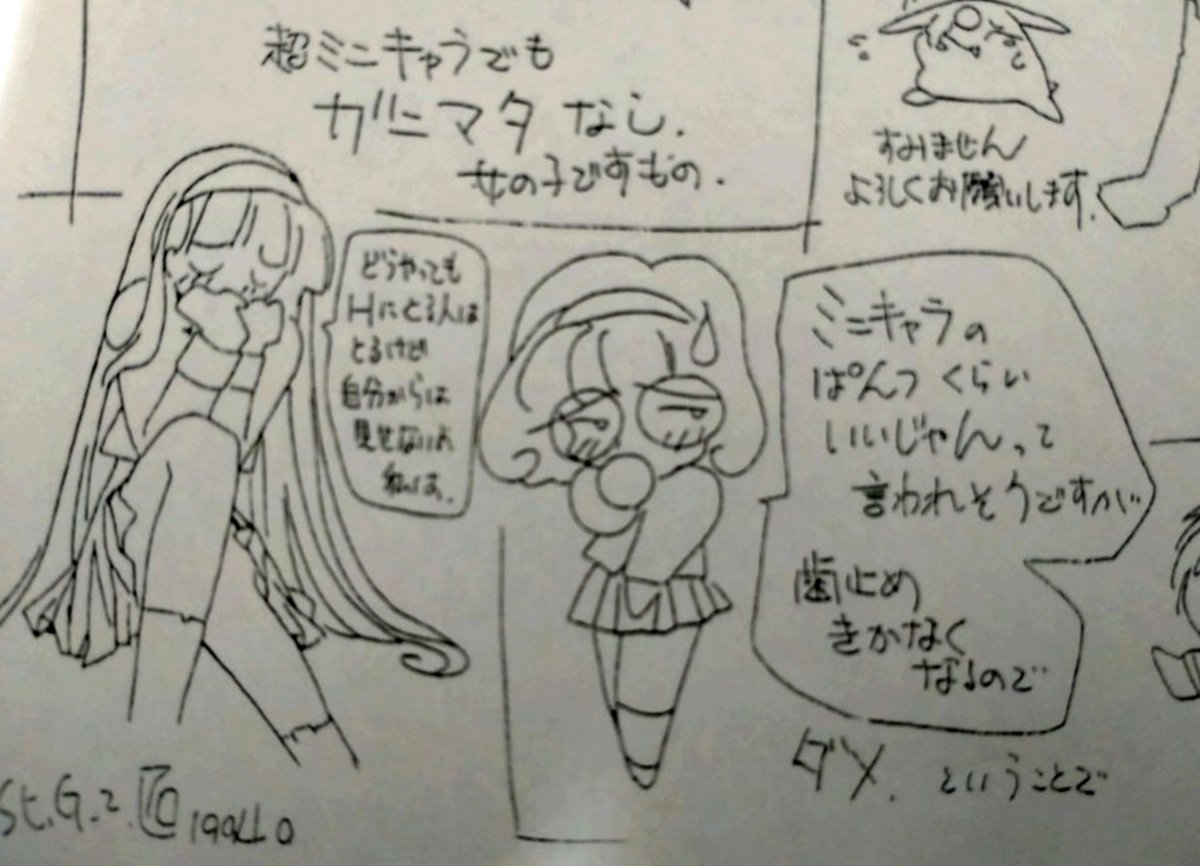 超ミニキャラでも
ガニマタ なし.
女の子ですもの.
すみません
よろしくお願いします.
どうやっても
Hにとる人は
とるけど
自分からは
見せないよ
私は.
ミニキャラの
ぱんつ くらい
いいじゃんって
言われそうですが
歯止め
きかなく
なるので
ダメ. ということで
St.G.2.